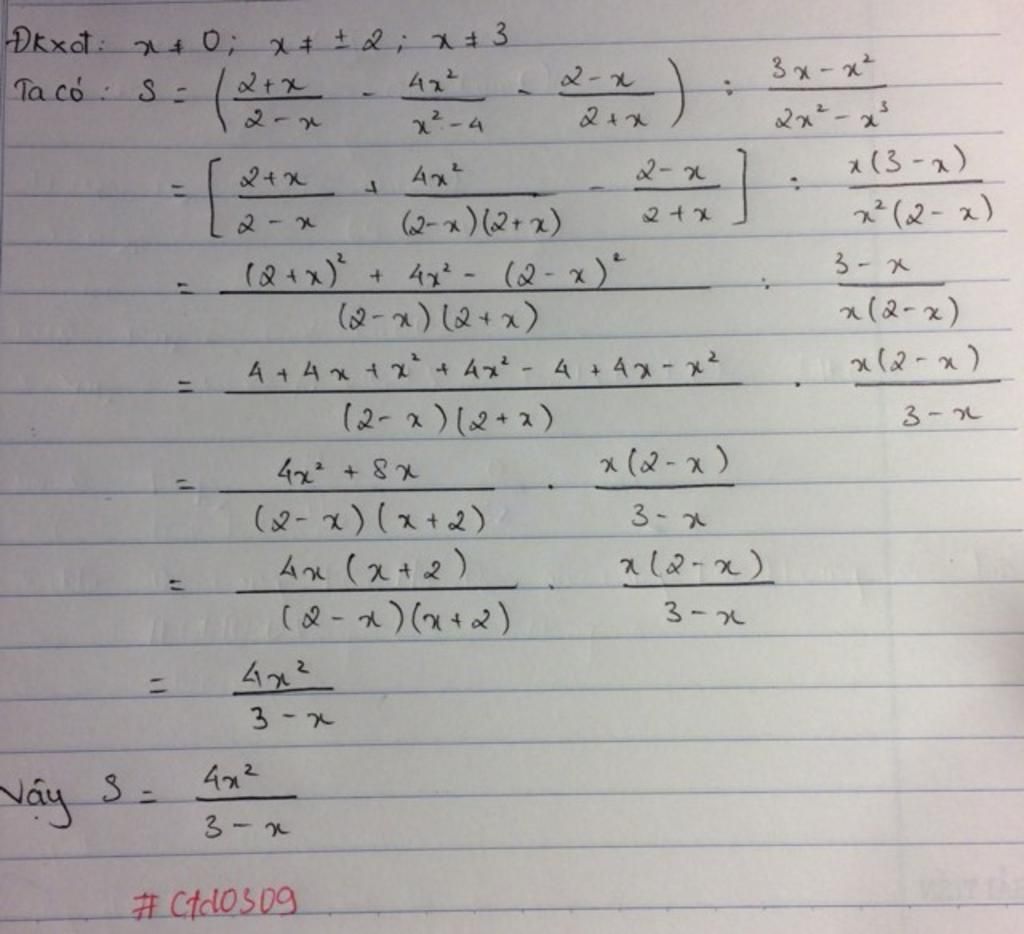 ĐKXĐ: x ≠ 0; x ≠ ± 2; x ≠ 3
Ta có: S = ( (2+x)/(2-x) - 4x²/(x²-4) - (2-x)/(2+x) ) : (3x-x²)/(2x²-x³)
= [ (2+x)/(2-x) + 4x²/((2-x)(2+x)) - (2-x)/(2+x) ] : x(3-x)/(x²(2-x))
= ((2+x)² + 4x² - (2-x)²)/((2-x)(2+x)) : (3-x)/(x(2-x))
= (4 + 4x + x² + 4x² - 4 + 4x - x²)/((2-x)(2+x)) . x(2-x)/(3-x)
= (4x² + 8x)/((2-x)(x+2)) . x(2-x)/(3-x)
= 4x(x+2)/((2-x)(x+2)) . x(2-x)/(3-x)
= 4x²/(3-x)
Vậy S = 4x²/(3-x)
# Ctd0309